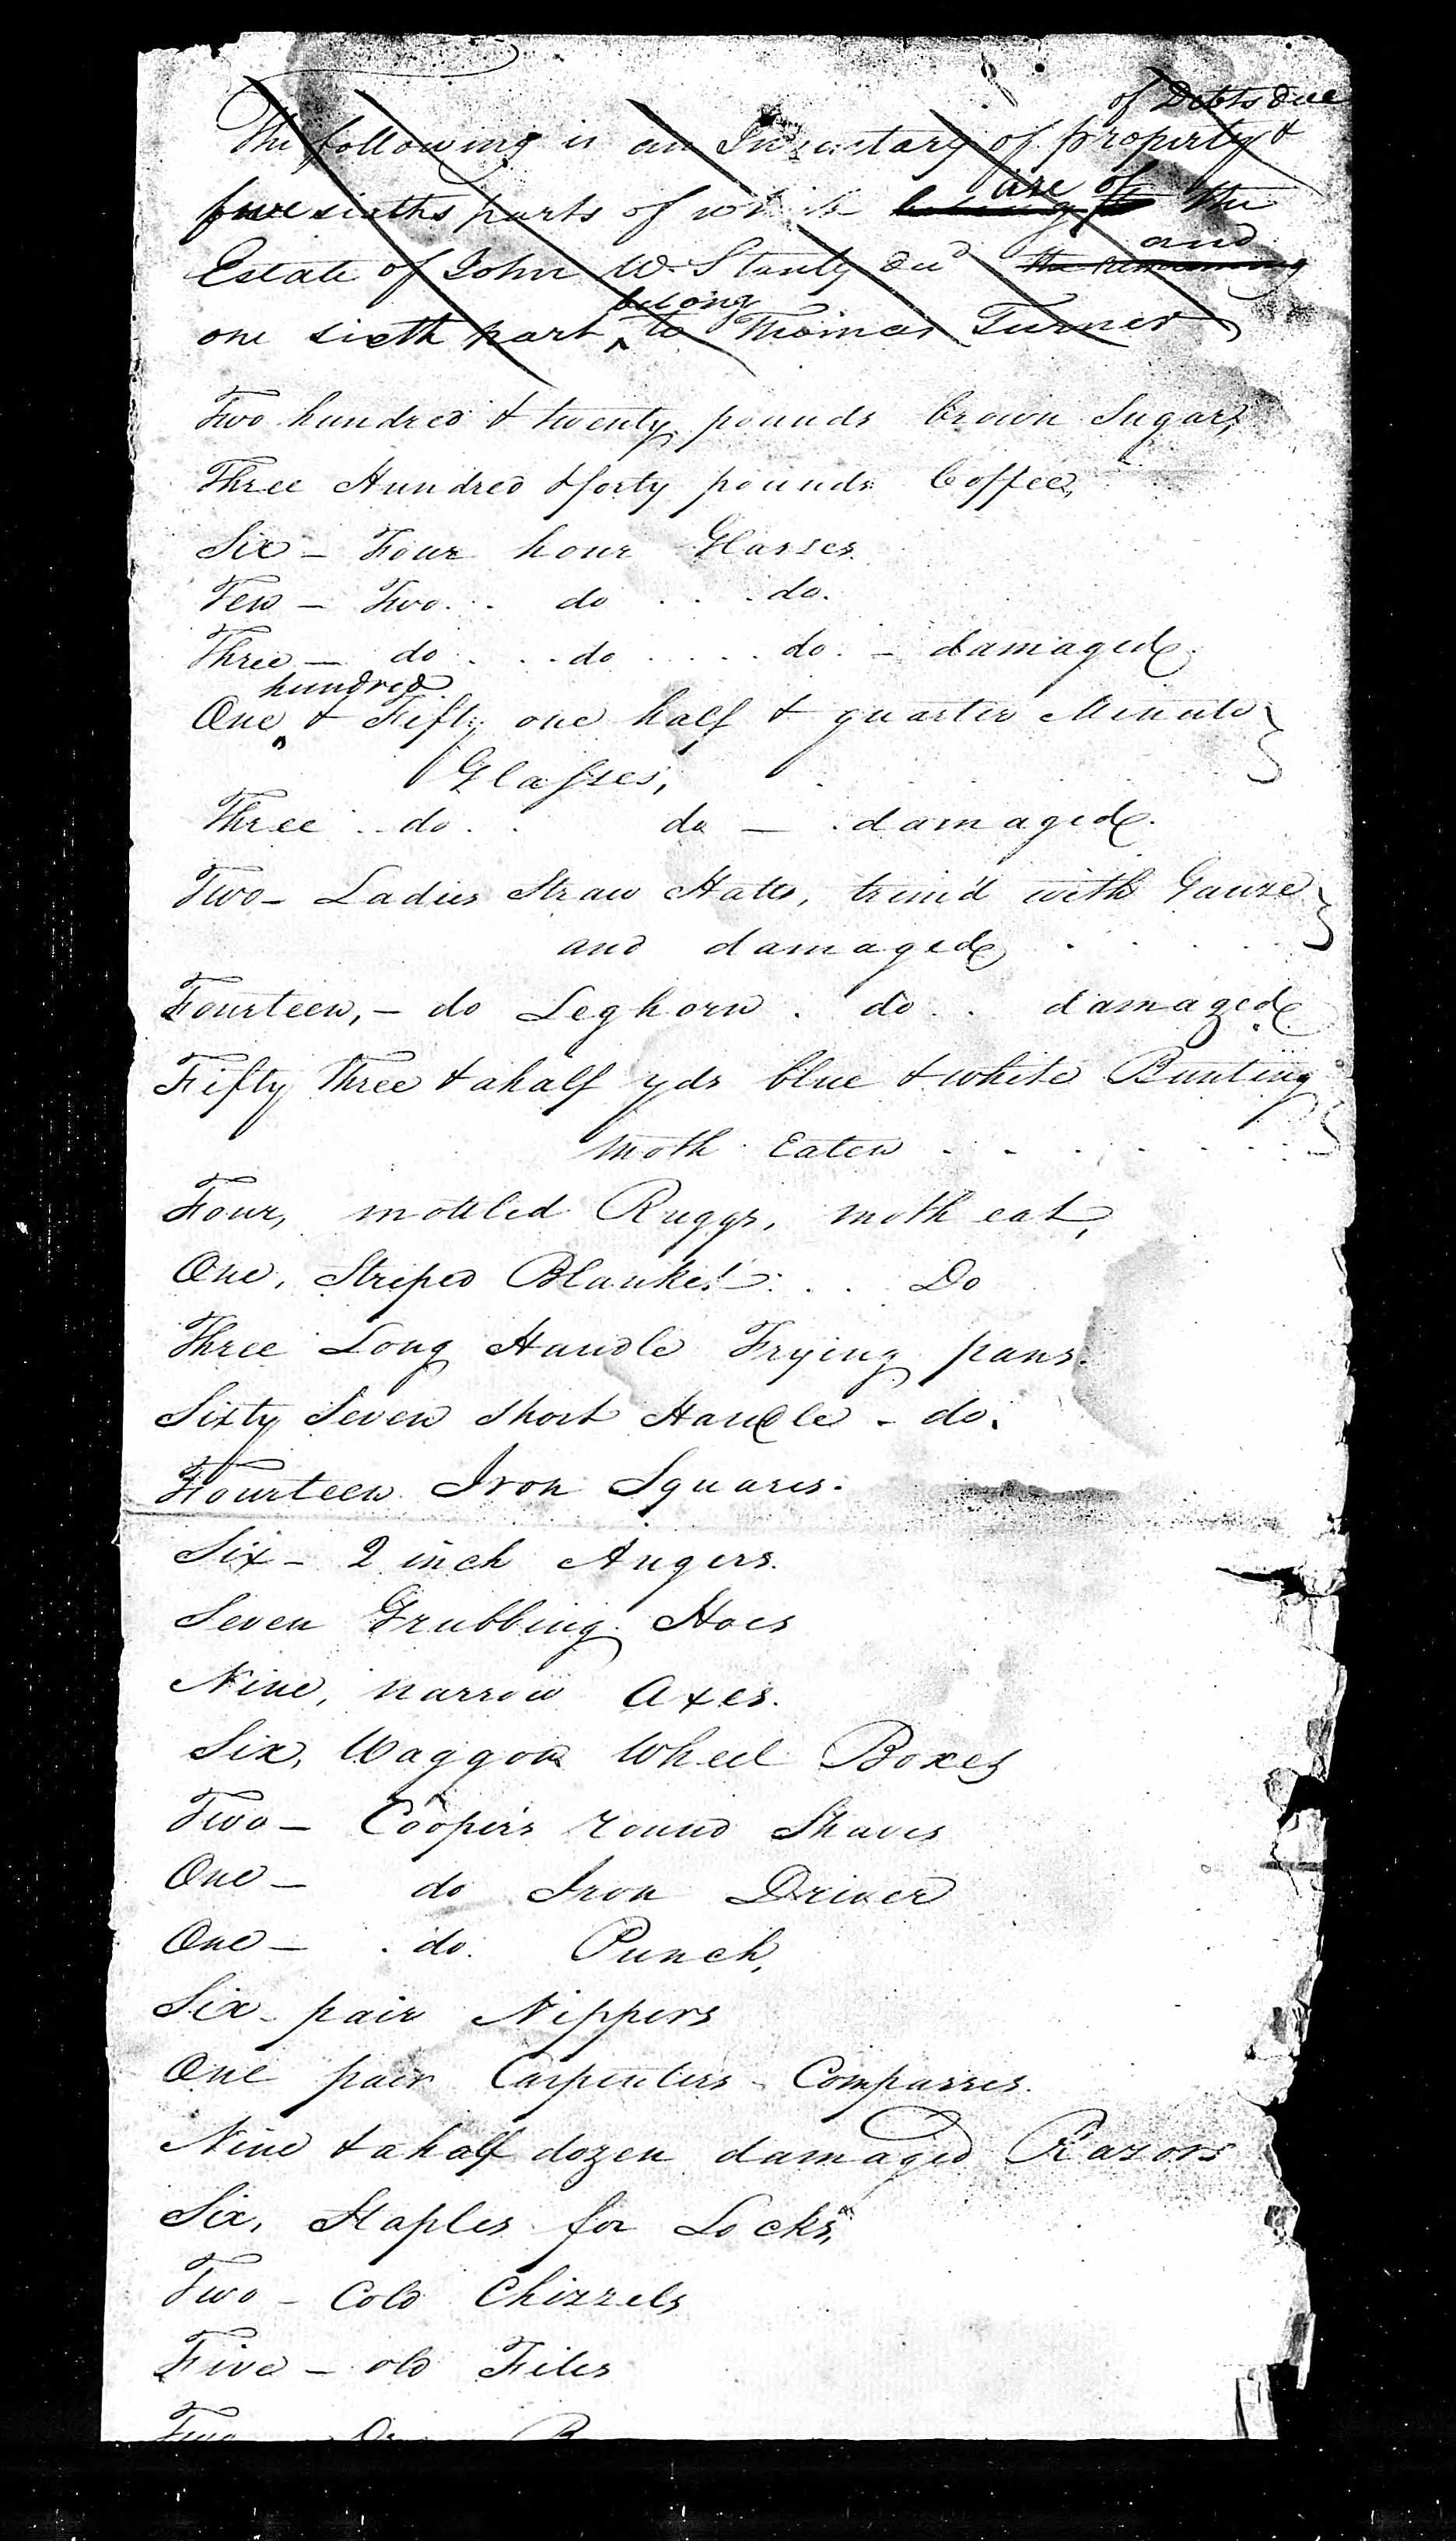 of Debts due
The following is an Inventary of property &
five sixths parts of which are of the
Estate of John W. Stanly decd the remaining and
one sixth part belong to Thomas Turner
Two hundred & twenty pounds brown Sugar,
Three Hundred & forty pounds Coffee,
Six - Four hour Glasses
Ten - Two . . do . . . do.
Three - do . . . do . . . . do. - damaged
hundred
One & Fifty one half & quarter Minute
Glasses,
Three . . do . . do - . damaged.
Two - Ladies Straw Hatts, trim'd with Gauze
and damaged . . . .
Fourteen, - do Leghorn . do . . damaged
Fifty Three & a half yds blue & white Bunting
moth Eaten . - . . . .
Four, mottled Ruggs, moth eat,
One, Striped Blanket . . . Do
Three Long Handle Frying pans.
Sixty Seven Short Handle - do.
Fourteen Iron Squares.
Six - 2 inch Augers.
Seven Grubbing Hoes
Nine, narrow Axes.
Six, Waggon Wheel Boxes
Two - Cooper's round Shaves
One - do Iron Driver
One - . do. Punch,
Six - pair Nippers
One pair Carpenters - Compasses.
Nine & a half dozen damaged Razors
Six, Staples for Locks,
Two - Cold Chizzels
Five - old Files
Two